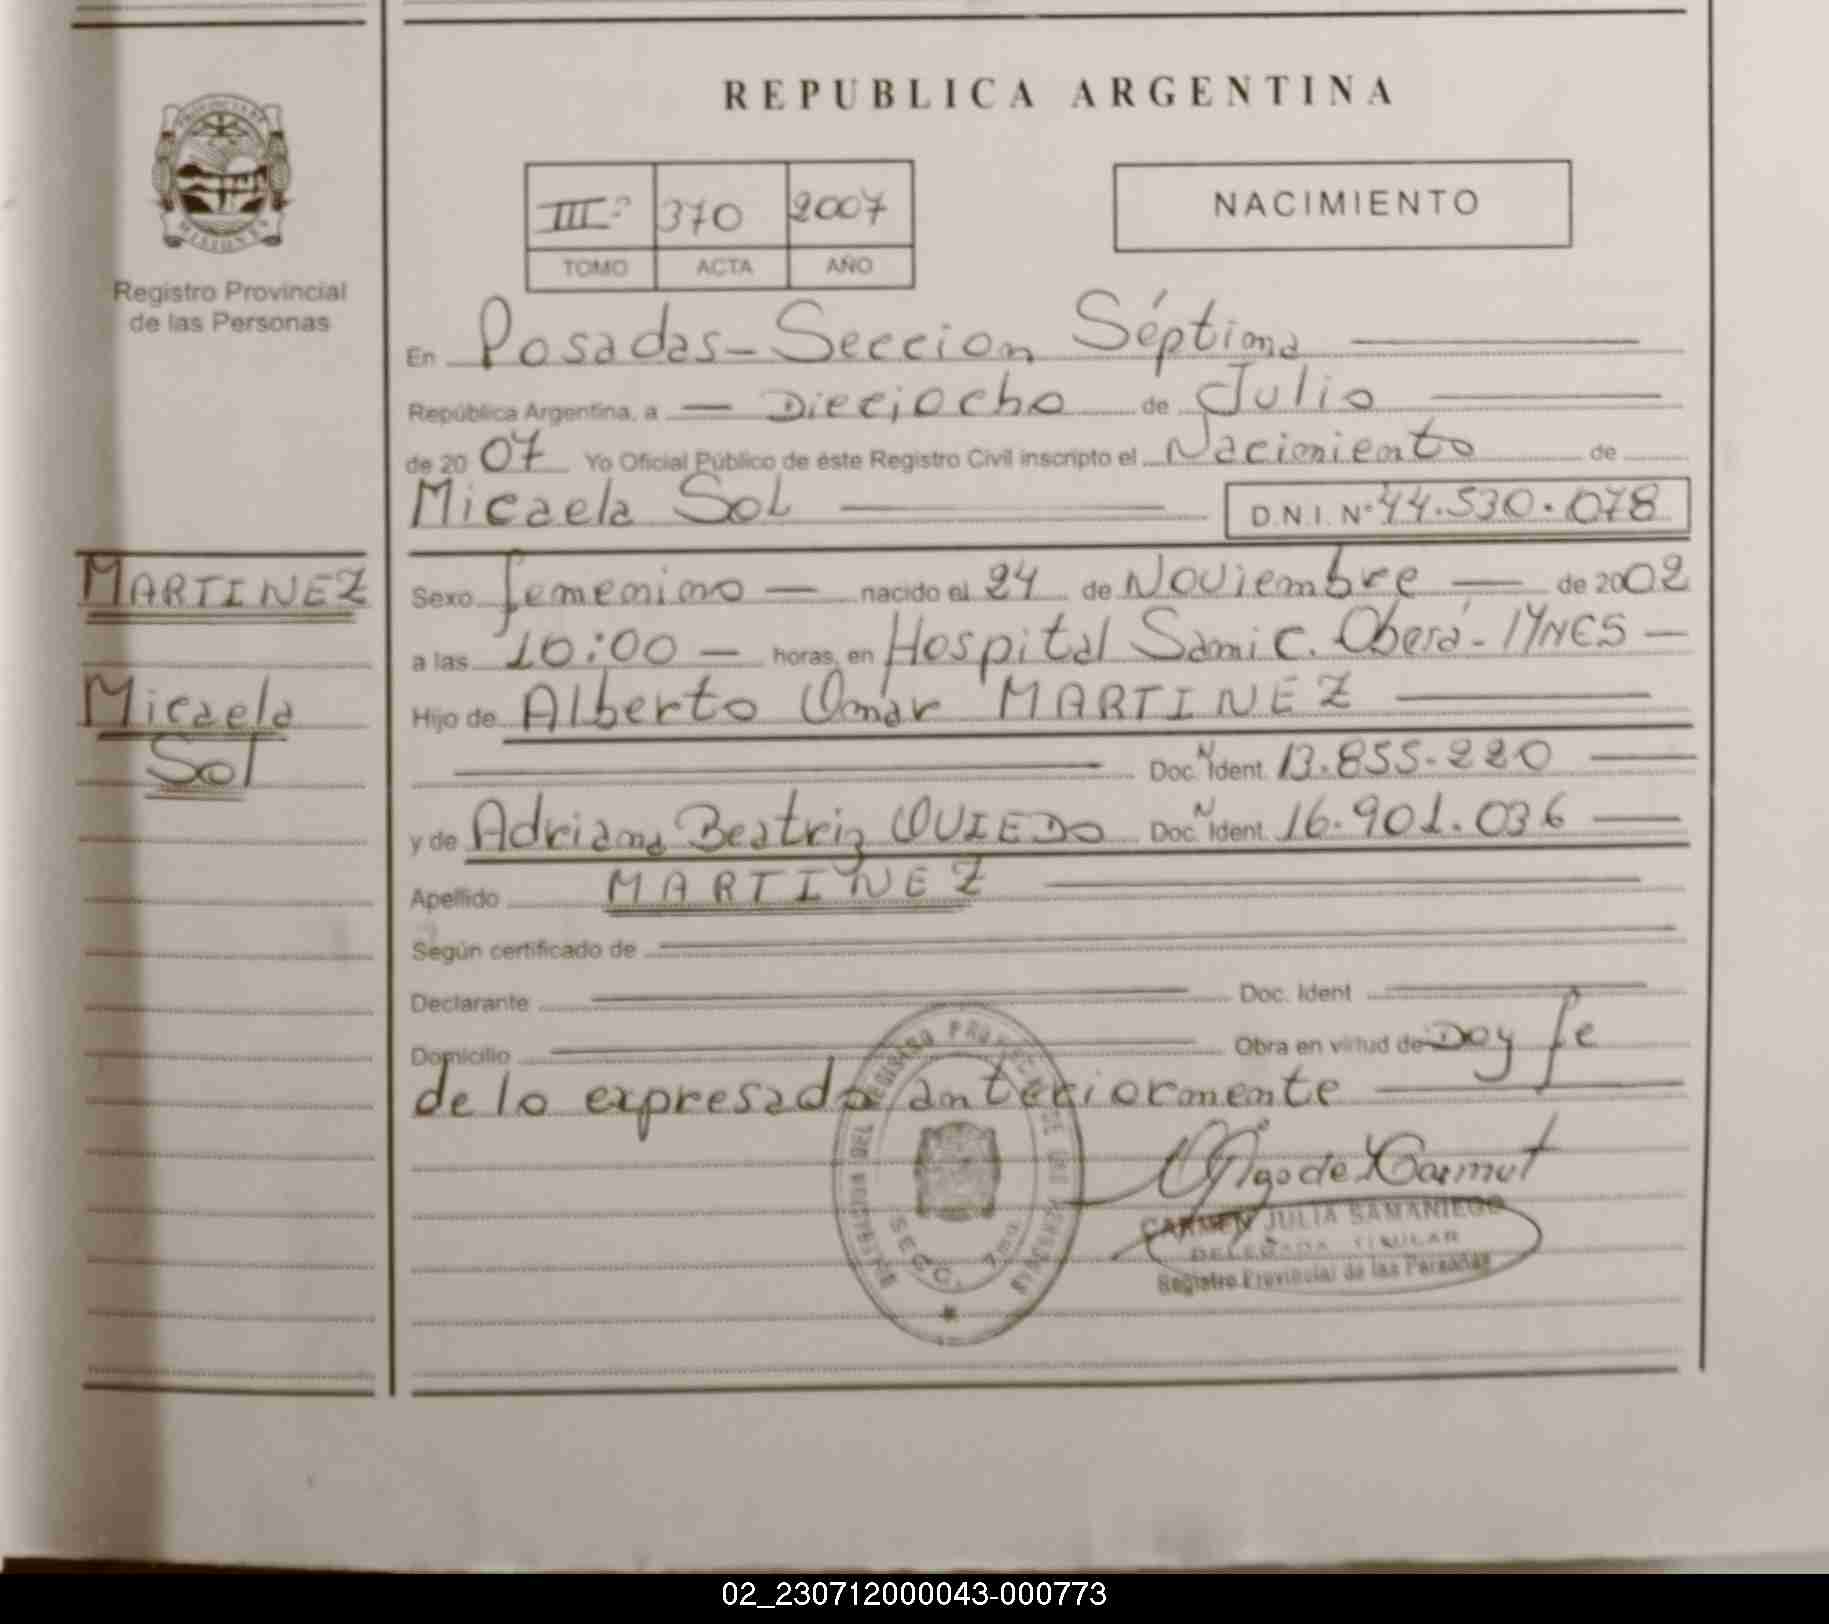 REPUBLICA ARGENTINA
PROVINCIA DE
MISIONES
Registro Provincial
de las Personas
III° 370 2007
TOMO ACTA AÑO
NACIMIENTO
En Posadas - Seccion Séptima
República Argentina, a Dieciocho de Julio
de 2007 Yo Oficial Público de éste Registro Civil inscripto el Nacimiento de
Micaela Sol D.N.I. Nº 44.530.078
MARTINEZ
Micaela
Sol
Sexo femenino nacido el 24 de Noviembre de 2002
a las 10:00 horas, en Hospital Samic. Oberá -
Hijo de Alberto Omar MARTINEZ
Doc. N Ident. 13.855.220
y de Adriana Beatriz OVIEDO Doc. N Ident. 16.901.036
Apellido MARTINEZ
Según certificado de
Declarante Doc. Ident
Domicilio Obra en virtud de Doy fe
de lo expresado anteriormente
REGISTRO PROVINCIAL DE LAS PERSONAS
SECC. 7ma
CARMEN JULIA SAMANIEGO
DELEGADA TITULAR
Registro Provincial de las Personas
02_230712000043-000773